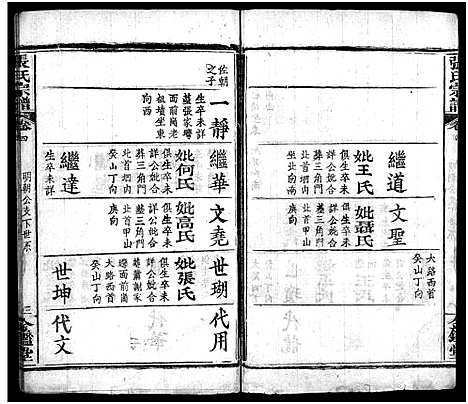 張氏宗譜
卷四
繼道
妣王氏
俱生卒未
詳公妣合
葬三角門
北首坦內
癸山丁向
文聖
妣聶氏
俱生卒未
詳公妣合
墓三角門
北首甲山
庚向
大路西首
癸山丁向
金鑑堂
佐朝
之子
一靜
生卒未詳
葬張家塆
面前崗老
祖墳坐東
向西
繼華
妣何氏
俱生卒未
詳公妣合
葬三角門
北首坦內
癸山丁向
文堯
妣高氏
俱生卒未
詳公妣合
墓三角門
北首甲山
庚向
世瑚
妣張氏
俱生卒未
詳公妣合
墓蕭謝家
邊面前崗
大路西首
癸山丁向
代用
繼達
生卒未詳
世坤
代文
張氏宗譜
卷四
明朝公支下世系
三
金鑑堂